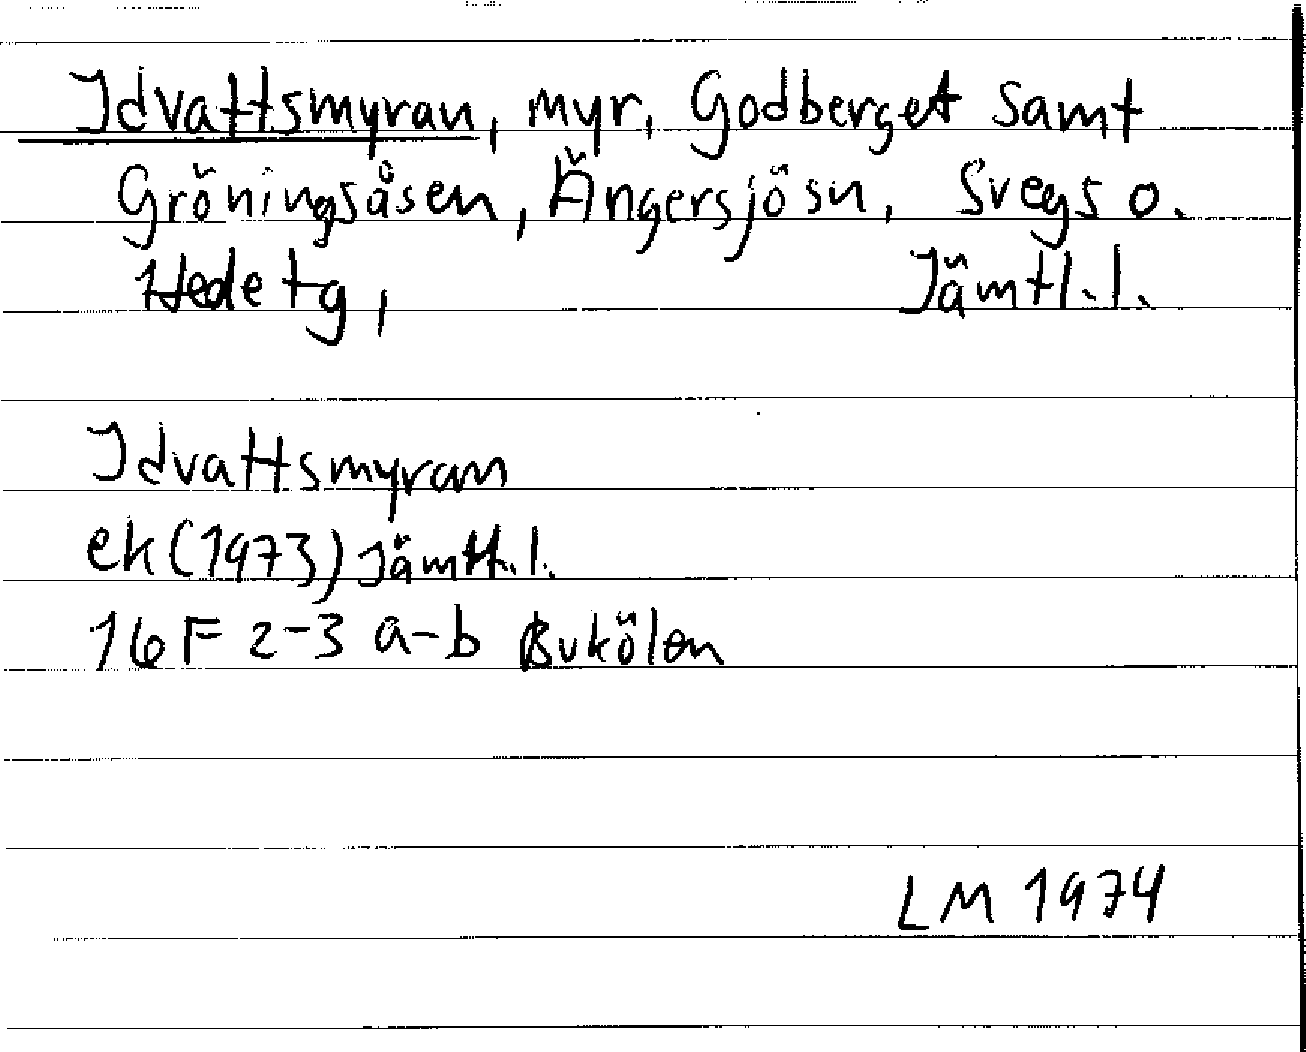 Idvattsmyran, myr, Godberget samt
Gröningsåsen, Ängersjö sn, Svegs o.
Hede tg, Jämtl. l.
Idvattsmyran
ek (1973) Jämtl. l.
16F 2-3 a-b Bukölen
LM 1974